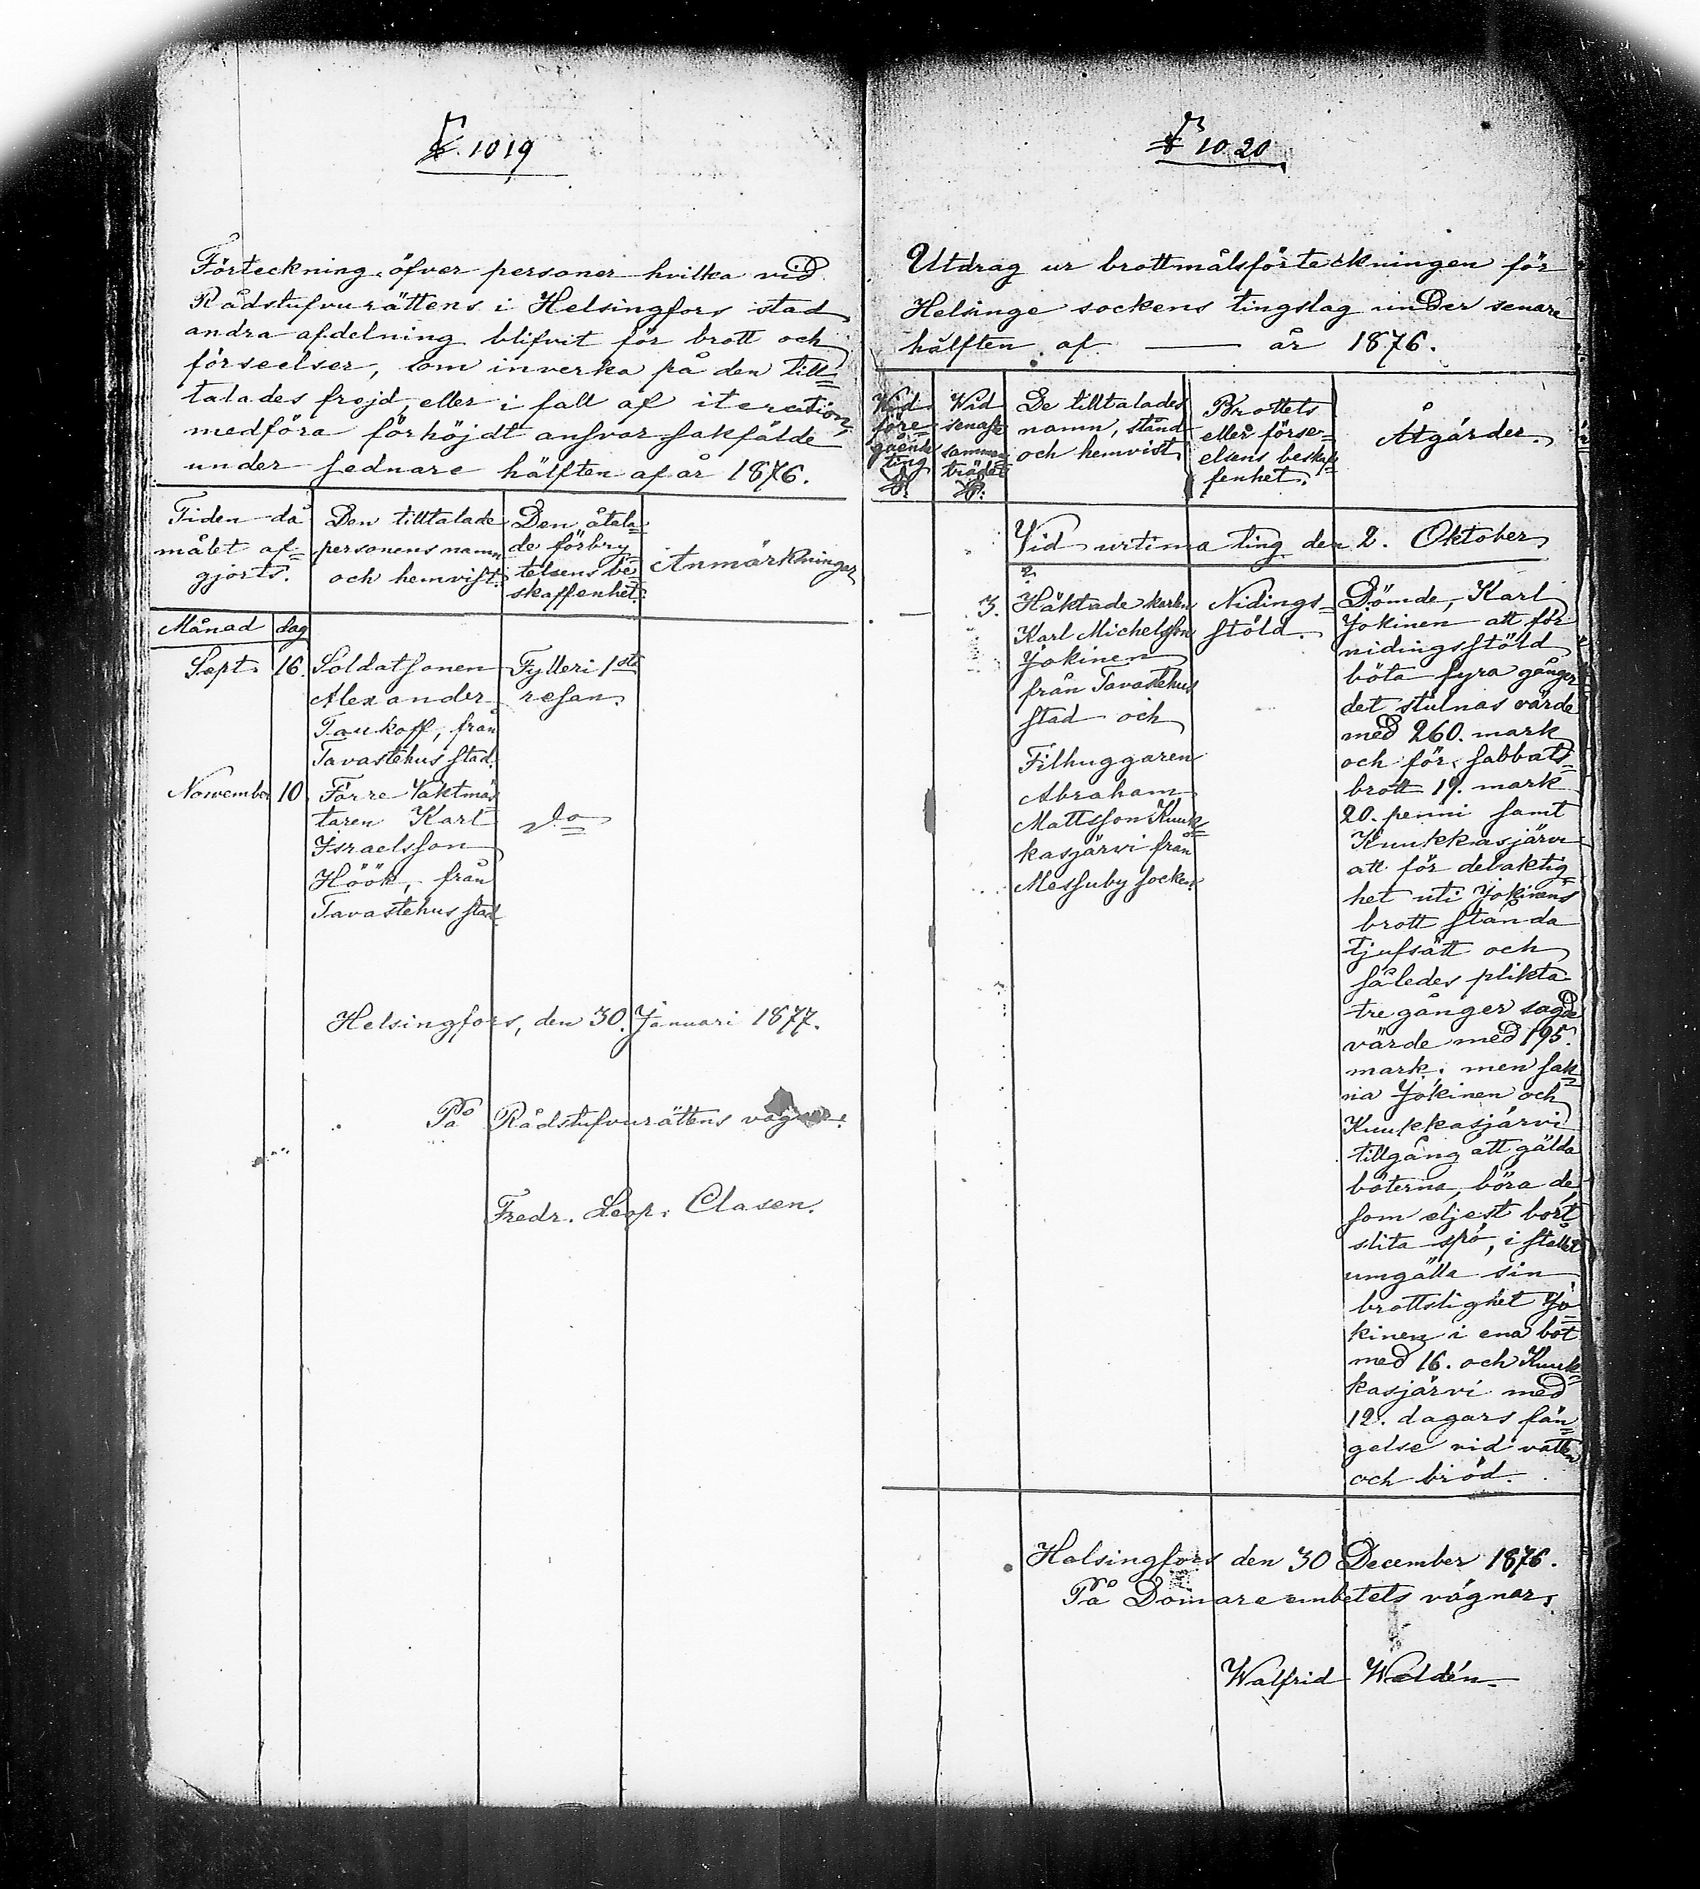 № 1019
Förteckning öfver personer hvilka vid
Rådstufvurättens i Helsingfors stad
andra afdelning blifvit för brott och
förseelser, som inverka på den till=
talades frejd, eller i fall af iteration,
medföra förhöjdt ansvar sakfälde
under sednare hälften af år 1876.
Tiden då
målet af=
gjorts.
Den tilltalade
personens namn
och hemvist.
Den åtala=
de förbry=
telsens be=
skaffenhet.
Anmärkningar
Månad dag
Sept. 16.
Soldatsonen
Alexander
Taukoff, från
Tavastehus stad.
Fylleri 1sta
resan.
November 10
Förre Vaktmäs
taren Karl
Israelsson
Höök, från
Tavastehus stad.
do
Helsingfors, den 30. Januari 1877.
På Rådstufvurättens vägnar:
Fredr. Leop. Clasen.
№ 1020
Utdrag ur brottmålsförteckningen för
Helsinge sockens tingslag under senare
hälften af — år 1876.
Vid
före=
gående
ting
№.
Vid
senaste
samman=
trädet
№.
De tilltalades
namn, stånd
och hemvist
Brottets
eller förse=
elsens beskaf=
fenhet.
Åtgärder.
Vid urtima ting den 2. Oktober
— 3.
Häktade karlen
Karl Michelsson
Jokinen
från Tavastehus
stad och
Filhuggaren
Abraham
Mattsson Kuuk=
kasjärvi från
Messuby socken.
Nidings=
stöld.
Dömde, Karl
Jokinen att för
nidingsstöld
böta fyra gånger
det stulnas värde
med 260. mark
och för sabbats=
brott 19. mark
20. penni samt
Kuukkasjärvi
att för delaktig=
het uti Jokinens
brott stånda
tjufsätt och
således plikta
tre gånger sagde
värde med 195.
mark; men sak=
na Jokinen och
Kuukkasjärvi
tillgång att gälda
böterna, böra de
som eljest bort
slita spö, i stället
umgälla sin
brottslighet Jo=
kinen i ena bot
med 16. och Kuuk=
kasjärvi med
12. dagars fän=
gelse vid vatten
och bröd.
Helsingfors den 30 December 1876.
På Domareembetets vägnar,
Walfrid Waldén